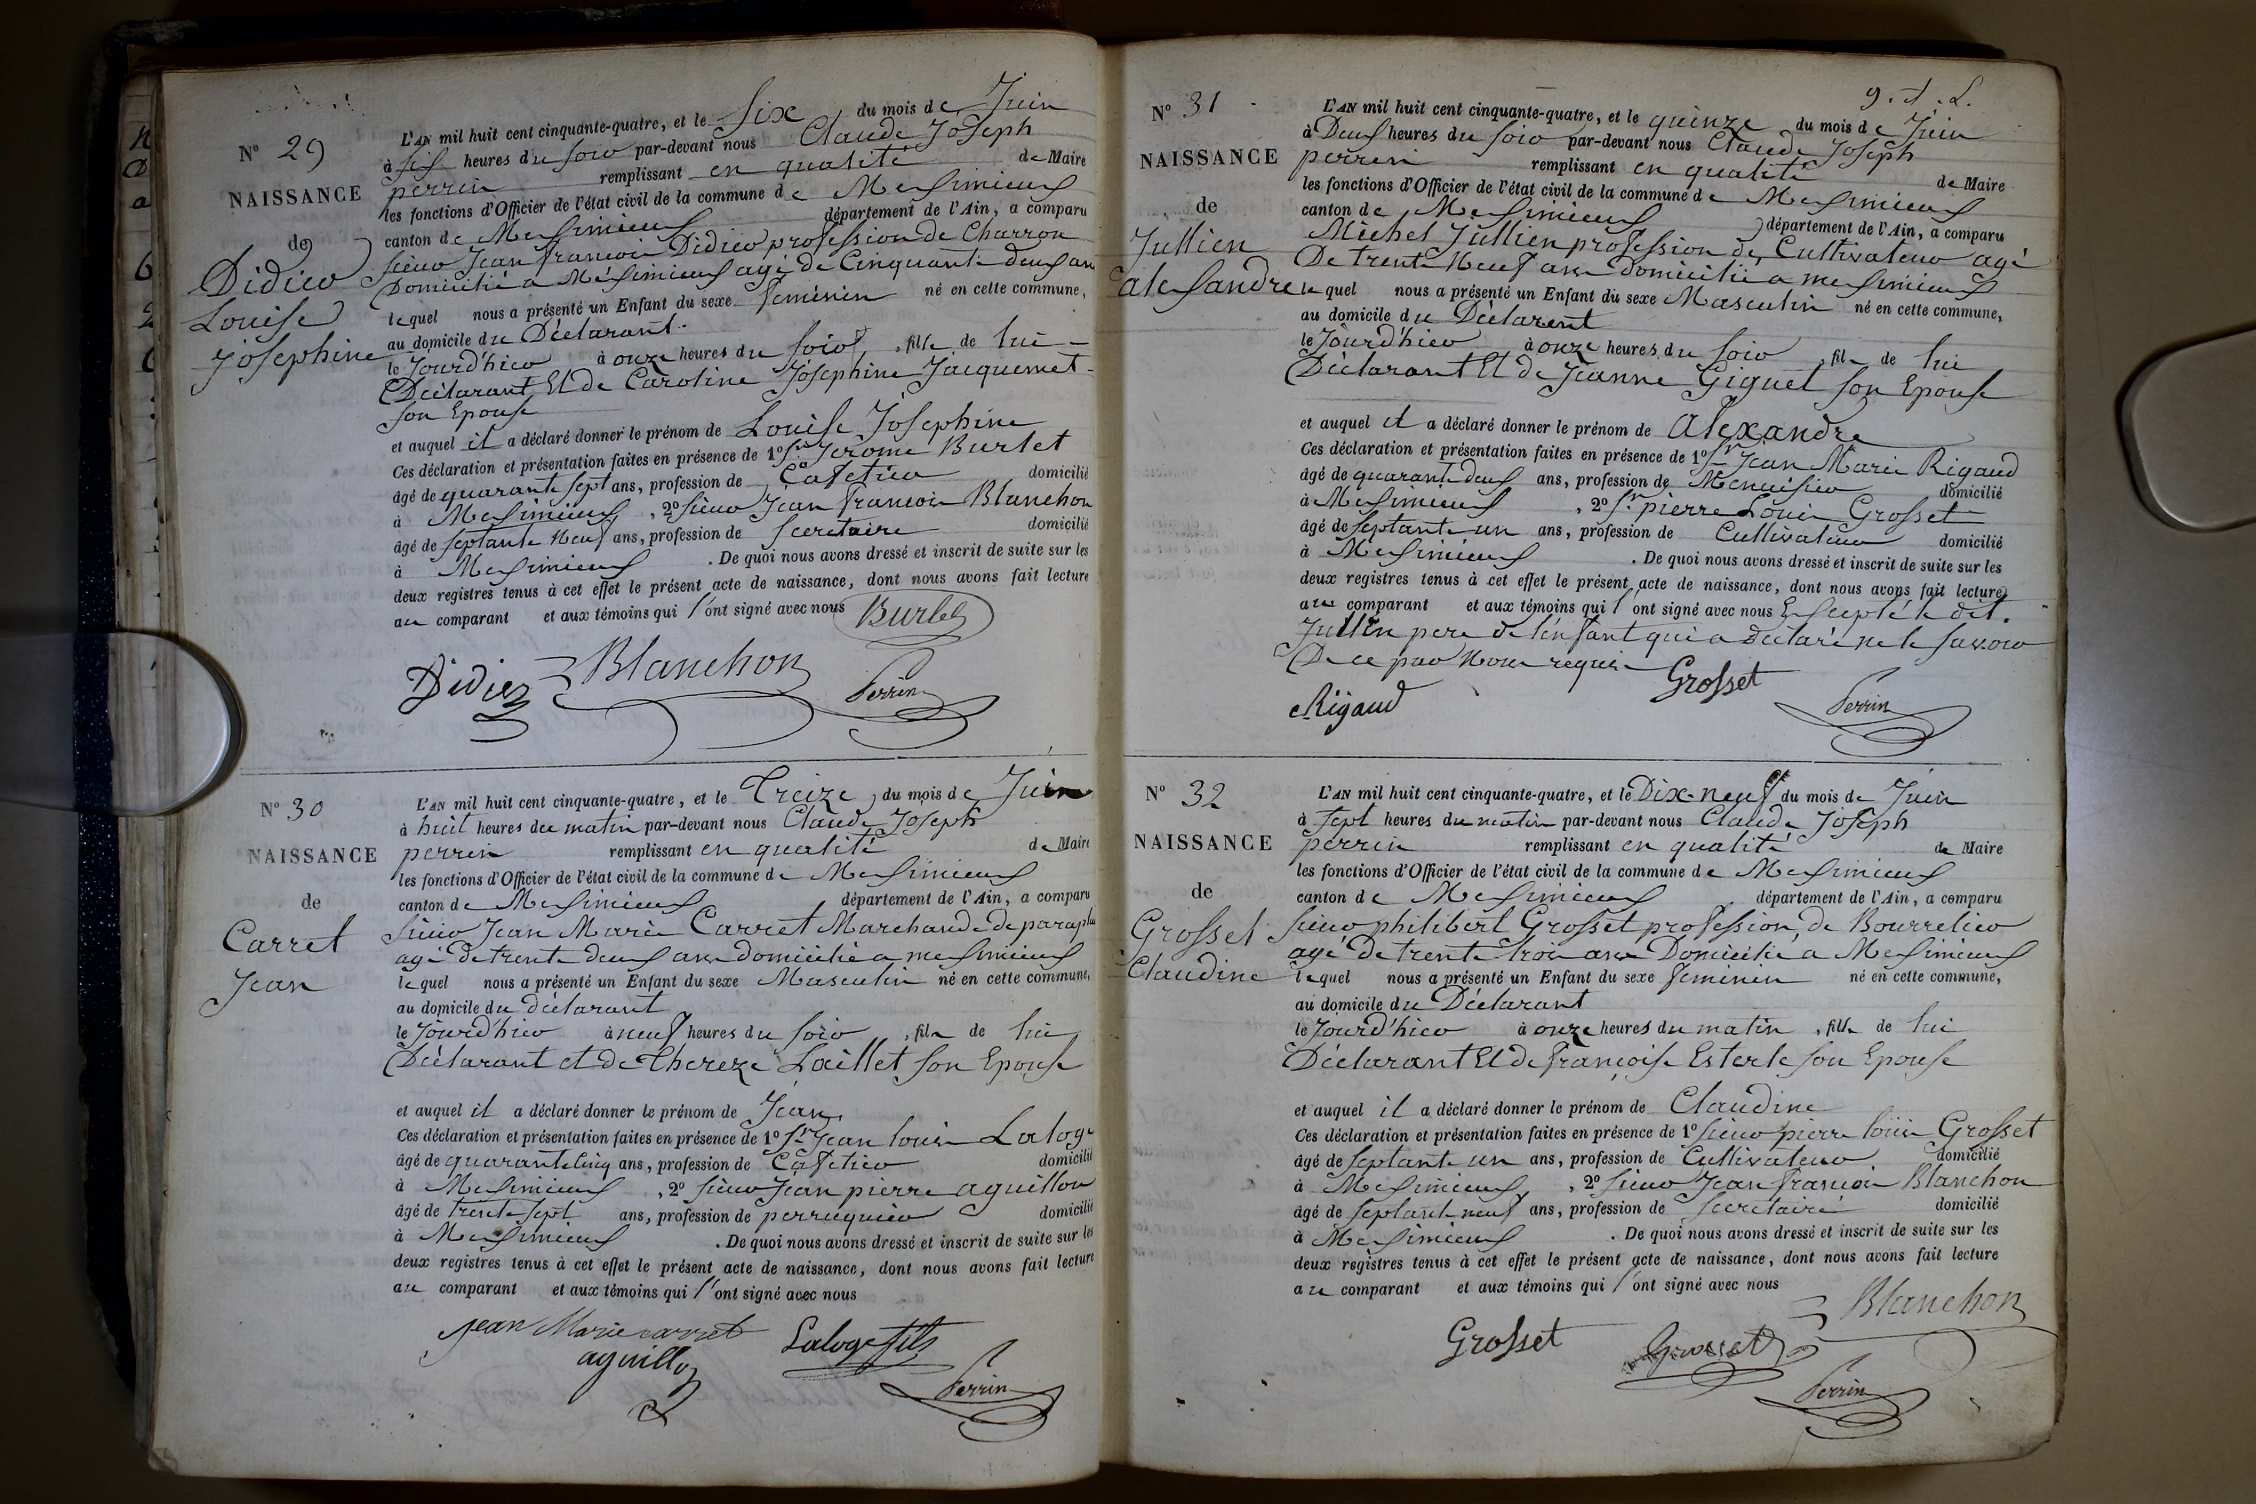 N° 29
NAISSANCE
de
Didier
Louise
Josephine
L'AN mil huit cent cinquante-quatre, et le Six du mois de Juin
à six heures du soir par-devant nous Claude Joseph
perrin remplissant en qualité de Maire
les fonctions d'Officier de l'état civil de la commune de Meximieux
canton de Meximieux département de l'Ain, a comparu
sieur Jean francois Didier profession de Charron
Domicilié a Méximieux agé de Cinquante deux ans
lequel nous a présenté un Enfant du sexe feminin né en cette commune,
au domicile du Déclarant.
le Jourd'hier à onze heures du soir, fille de lui
Déclarant Et de Caroline Josephine Jacquemet
son Epouse
et auquel il a déclaré donner le prénom de Louise Josephine
Ces déclaration et présentation faites en présence de 1° sr Jerome Burlet
âgé de quarante sept ans, profession de Cafetier domicilié
à Meximieux, 2° sieur Jean francois Blanchon
âgé de septante neuf ans, profession de secretaire domicilié
à Meximieux. De quoi nous avons dressé et inscrit de suite sur les
deux registres tenus à cet effet le présent acte de naissance, dont nous avons fait lecture
au comparant et aux témoins qui l'ont signé avec nous Burlet
Didier Blanchon Perrin
N° 30
NAISSANCE
de
Carret
Jean
L'AN mil huit cent cinquante-quatre, et le Treize du mois de Juin
à huit heures du matin par-devant nous Claude Joseph
perrin remplissant en qualité de Maire
les fonctions d'Officier de l'état civil de la commune de Meximieux
canton de Meximieux département de l'Ain, a comparu
sieur Jean Marie Carret Marchand de parapluie
agé de trente deux ans domicilié a meximieux
lequel nous a présenté un Enfant du sexe Masculin né en cette commune,
au domicile du déclarant
le Jourd'hier à neuf heures du soir, fils de lui
Déclarant et de Thereze Laillet son Epouse
et auquel il a déclaré donner le prénom de Jean
Ces déclaration et présentation faites en présence de 1° sr Jean louis Laloge
âgé de quarante cinq ans, profession de Cafetier domicilié
à Meximieux, 2° sieur Jean pierre aguillon
âgé de trente sept ans, profession de perruquier domicilié
à Meximieux. De quoi nous avons dressé et inscrit de suite sur les
deux registres tenus à cet effet le présent acte de naissance, dont nous avons fait lecture
au comparant et aux témoins qui l'ont signé avec nous
Jean Marie carret Laloge fils
aguillon Perrin
9. J. L.
N° 31
NAISSANCE
de
Jullien
alexandre
L'AN mil huit cent cinquante-quatre, et le quinze du mois de Juin
à Deux heures du soir par-devant nous Claude Joseph
perrin remplissant en qualité de Maire
les fonctions d'Officier de l'état civil de la commune de Meximieux
canton de Meximieux département de l'Ain, a comparu
Michel Jullien profession de Cultivateur agé
De trente Neuf ans domicilié a meximieux
lequel nous a présenté un Enfant du sexe Masculin né en cette commune,
au domicile du Déclarent
le Jourd'hier à onze heures du soir, fils de lui
Déclarant Et de Jeanne Giguet son Epouse
et auquel il a déclaré donner le prénom de Alexandre
Ces déclaration et présentation faites en présence de 1° sr Jean Marie Rigaud
âgé de quarante deux ans, profession de Menuisier domicilié
à Meximieux, 2° sr pierre Louis Grosset
âgé de septante un ans, profession de Cultivateur domicilié
à Meximieux. De quoi nous avons dressé et inscrit de suite sur les
deux registres tenus à cet effet le présent acte de naissance, dont nous avons fait lecture
au comparant et aux témoins qui l'ont signé avec nous Excepté le dit.
Jullien pere de l'enfant qui a déclaré ne le savoir
De ce par Nous requis
Rigaud Grosset Perrin
N° 32
NAISSANCE
de
Grosset
Claudine
L'AN mil huit cent cinquante-quatre, et le Dix-neuf du mois de Juin
à sept heures du matin par-devant nous Claude Joseph
perrin remplissant en qualité de Maire
les fonctions d'Officier de l'état civil de la commune de Meximieux
canton de Meximieux département de l'Ain, a comparu
sieur philibert Grosset profession de Bourrelier
agé De trente trois ans Domicilié a Meximieux
lequel nous a présenté un Enfant du sexe feminin né en cette commune,
au domicile du Déclarant
le Jourd'hier à onze heures du matin, fille de lui
Déclarant Et de françoise Esterle son Epouse
et auquel il a déclaré donner le prénom de Claudine
Ces déclaration et présentation faites en présence de 1° sieur pierre louis Grosset
âgé de septante un ans, profession de Cultivateur domicilié
à Meximieux, 2° sieur Jean francois Blanchon
âgé de septante neuf ans, profession de secretaire domicilié
à Meximieux. De quoi nous avons dressé et inscrit de suite sur les
deux registres tenus à cet effet le présent acte de naissance, dont nous avons fait lecture
au comparant et aux témoins qui l'ont signé avec nous
Blanchon
Grosset Grosset
Perrin